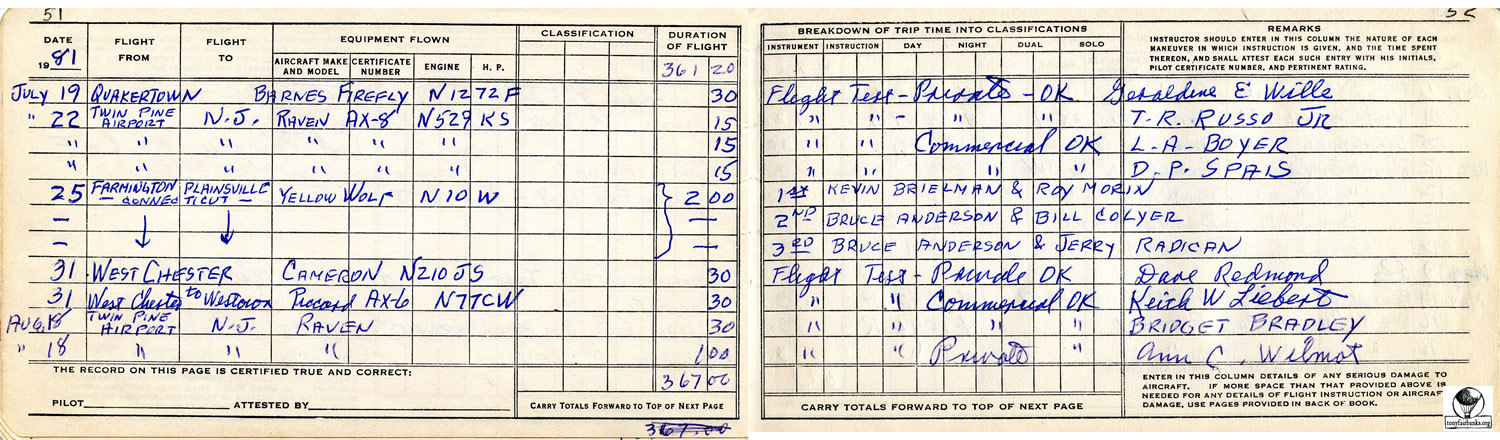 51
DATE 1981 FLIGHT FROM FLIGHT TO EQUIPMENT FLOWN CLASSIFICATION DURATION OF FLIGHT
AIRCRAFT MAKE AND MODEL CERTIFICATE NUMBER ENGINE H. P. 361 20
JULY 19 QUAKERTOWN BARNES FIREFLY N1272F 30
" 22 TWIN PINE AIRPORT N.J. RAVEN AX-8 N529 KS 15
" " " " " " 15
" " " " " " 15
25 FARMINGTON PLAINSVILLE CONNECTICUT YELLOW WOLF N10W 2 00
— —
— —
31 WEST CHESTER CAMERON N210JS 30
31 West Chester to Westown Piccard AX-6 N77CW 30
AUG 18 TWIN PINE AIRPORT N.J. RAVEN 30
" 18 " " " 1 00
THE RECORD ON THIS PAGE IS CERTIFIED TRUE AND CORRECT: 367 00
PILOT ATTESTED BY CARRY TOTALS FORWARD TO TOP OF NEXT PAGE
367.00
52
BREAKDOWN OF TRIP TIME INTO CLASSIFICATIONS REMARKS
INSTRUMENT INSTRUCTION DAY NIGHT DUAL SOLO
INSTRUCTOR SHOULD ENTER IN THIS COLUMN THE NATURE OF EACH
MANEUVER IN WHICH INSTRUCTION IS GIVEN, AND THE TIME SPENT
THEREON, AND SHALL ATTEST EACH SUCH ENTRY WITH HIS INITIALS,
PILOT CERTIFICATE NUMBER, AND PERTINENT RATING.
Flight Test - Private - OK Geraldine E Wille
" " - " " T. R. RUSSO JR
" " Commercial OK L-A-BOYER
" " " " D. P. SPAIS
1st KEVIN BRIELMAN & ROY MORIN
2ND BRUCE ANDERSON & BILL COLYER
3RD BRUCE ANDERSON & JERRY RADICAN
Flight Test - Private OK Dave Redmond
" " Commercial OK Keith W Liebert
" " " " BRIDGET BRADLEY
" " Private " Ann C. Wilmot
CARRY TOTALS FORWARD TO TOP OF NEXT PAGE
ENTER IN THIS COLUMN DETAILS OF ANY SERIOUS DAMAGE TO
AIRCRAFT. IF MORE SPACE THAN THAT PROVIDED ABOVE IS
NEEDED FOR ANY DETAILS OF FLIGHT INSTRUCTION OR AIRCRAFT
DAMAGE, USE PAGES PROVIDED IN BACK OF BOOK.
tonyfairbanks.org